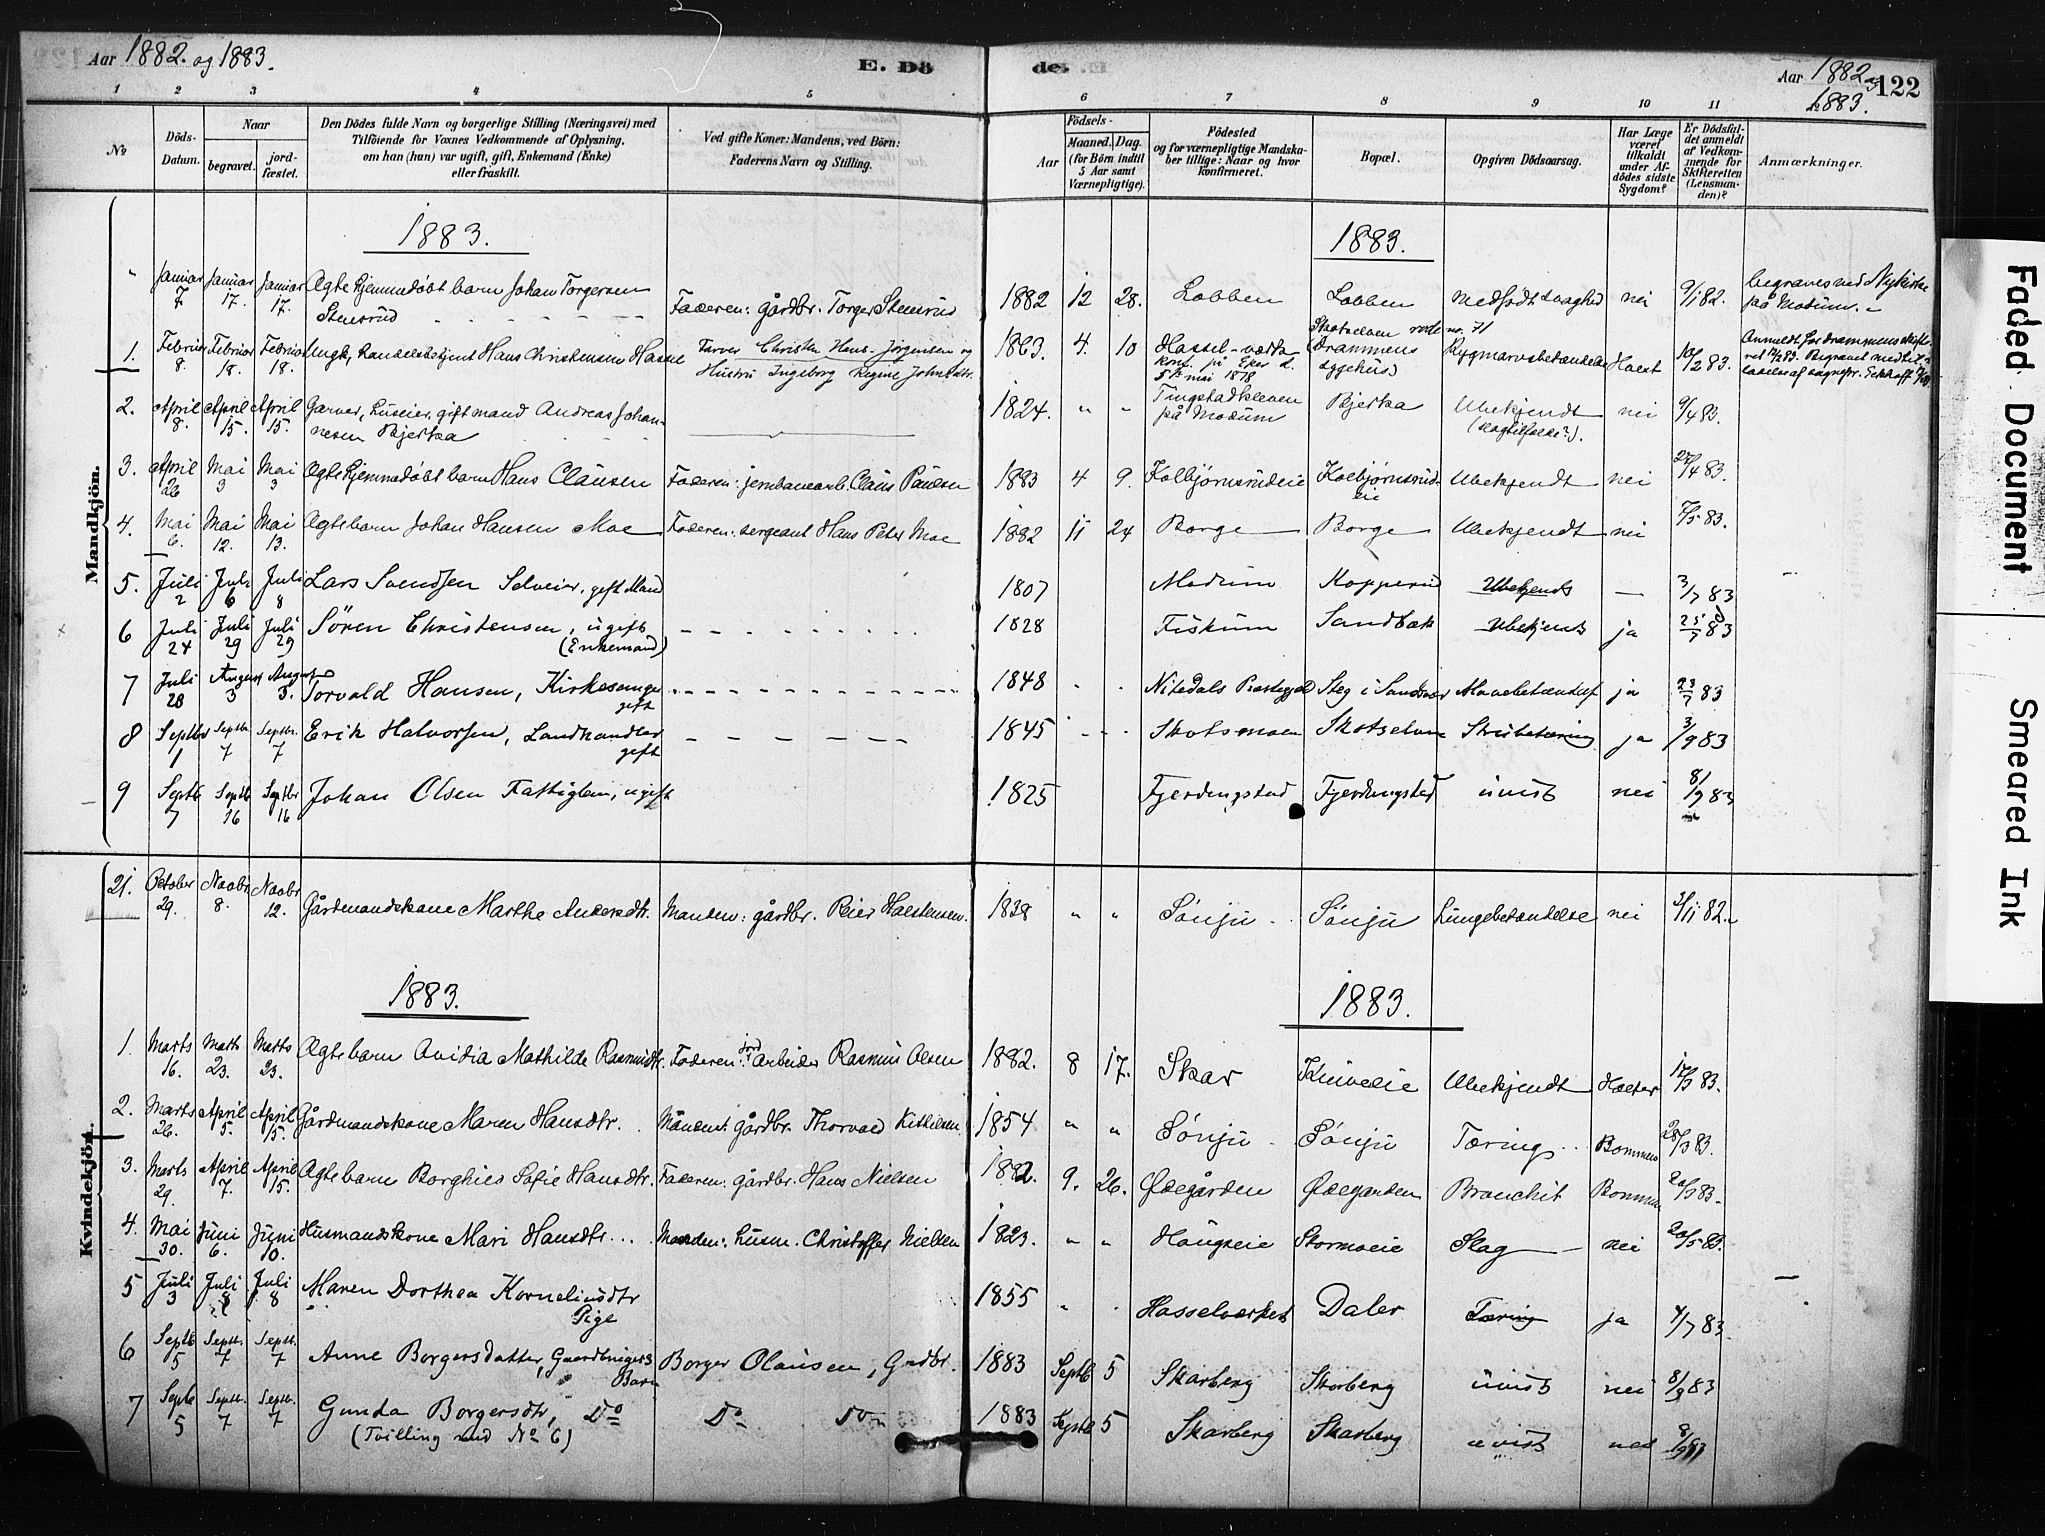 Aar 1882. og 1883.
E. Dö
de.
Aar 1882
1883.
122
1 2 3 4 5
6 7 8 9 10 11
No
Döds-Datum.
Naar
begravet.
jord-fæstet.
Den Dödes fulde Navn og borgerlige Stilling (Næringsvei) med
Tilföiende for Voxnes Vedkommende af Oplysning,
om han (hun) var ugift, gift, Enkemand (Enke)
eller fraskilt.
Ved gifte Koner: Mandens, ved Börn:
Faderens Navn og Stilling.
Födsels-
Aar
Maaned. Dag
(for Börn indtil
5 Aar samt
Værnepligtige).
Födested
og for værnepligtige Mandska-
ber tillige: Naar og hvor
konfirmeret.
Bopæl.
Opgiven Dödsaarsag.
Har Læge
været
tilkaldt
under Af-
dödes sidste
Sygdom?
Er Dödsfal-
det anmeldt
af Vedkom-
mende for
Skifteretten
(Lensman-
den)?
Anmærkninger.
Mandkjön.
1883.
1883.
" Januar 7 Januar 17. Januar 17. Ægte hjemmedøbt barn Johan Torgersen
Stensrud Faderen: gårdbr. Torger Stensrud 1882 12 28. Lobben Lobben Medfødt svaghed nei 9/1 82. begraves ved Nykirke
på Modum.
1. Februar 8. Februar 18. Februar 18. Ungk. Handelsbetjent Hans Christensen Hassel Farver Christen Hans Jørgensen og
Hustru Ingeborg Regine Johnsdtr. 1863. 4. 10 Hassel
konf. på Eker d.
5te mai 1878 Skotselven rode no. 71
(Drammens
sygehus) Rygmarvsbetændelse 10/2 83.
2. April 8. April 15. April 15. Garver, huseier, gift mand Andreas Johan-
nesen Bjerka 1824. " " Tingstadkleven
på Modum Bjerka Ubekjendt
(slagtilfælde?). nei 9/4 83.
3. April 26 Mai 3 Mai 3 Ægte hjemmedøbt barn Hans Clausen Faderen: jernbanearb. Claus Paulsen 1883 4 9. Kolbjørnsrudeie Kolbjørnsrud-
eie Ubekjendt nei 27/4 83.
4. Mai 6. Mai 12. Mai 13. Ægte barn Johan Hansen Moe Faderen: sergeant Hans Peter Moe 1882 11 24 Borge Borge Ubekjendt nei 7/5 83.
5. Juli 2 Juli 6 Juli 8 Lars Svendsen Selveier, gift Mand 1807 Modum Kopperud Ubekjendt — 3/7 83
6 Juli 24 Juli 29 Juli 29 Sören Christensen, ugift
(Enkemand) 1828 Fiskum Sandbak Ubekjendt ja 25/7 83
7 Juli 28 August 3 August 3. Torvald Hansen, Kirkesanger
gift 1848 Nitedals Præstegjeld Steg i Sandsvær ja 83
8 Septbr 1 Septbr. 7 Septbr. 7 Erik Halvorsen, Landhandler
gift 1845 Skotsmoen Skotselven Strubetæring ja 3/9 83
9 Septb 7 Septb 16 Septbr 16 Johan Olsen Fattiglem, ugift 1825 Fjerdingstad Fjerdingstad uvist nei 8/9 83
Kvindekjön.
21. October 29. Novbr 8. Novbr 12. Gårdmandskone Marthe Andersdtr. Manden: gårdbr. Peder Halstensen. 1838 " " Sønju Sønju Lungebetændelse nei 3/11 82.
1883.
1883.
1. Marts 16. Marts 23. Marts 23. Ægte barn Ovidia Mathilde Rasmusdtr. Faderen: jordarbeider Rasmus Olsen 1882. 8 17. Skar Ubekjendt 17/3 83.
2. Marts 26. April 5. April 15. Gårdmandskone Maren Hansdtr. Manden: gårdbr. Thorvald Kittilsen. 1854 " " Sønju Sønju Tæring 28/3 83.
3. Marts 29. April 7. April 15. Ægte barn Borghild Sofie Hansdtr. Faderen: gårdbr. Hans Nielsen 1882. 9. 26. Ødegården Ødegarden Bronchit
4. Mai 30. Juni 6. Juni 10. Husmandskone Mari Hansdtr. Manden: husm. Christoffer Nielsen 1823. " " Haugseie Stormoeie Slag nei
5 Juli 3 Juli 8 Juli 8 Maren Dorthea Kornelinsdtr
Pige 1855 Hasselværket Daler Tæring ja 4/7 83.
6 Septb 5 Septbr. 7 Septbr. 7 Anne Borgersdatter, Gaardbrugers
Barn Borger Olausen, Grdbr. 1883 Septb 5 Skarberg Skarberg uvist nei 8/9 83
7 Septb 5 Septbr. 7 Septbr. 7 Gunda Borgersdtr, Do
(Tvilling med No 6) Do Do 1883 Septb 5 Skarberg Skarberg uvist nei 8/9 83
Faded Document
Smeared Ink